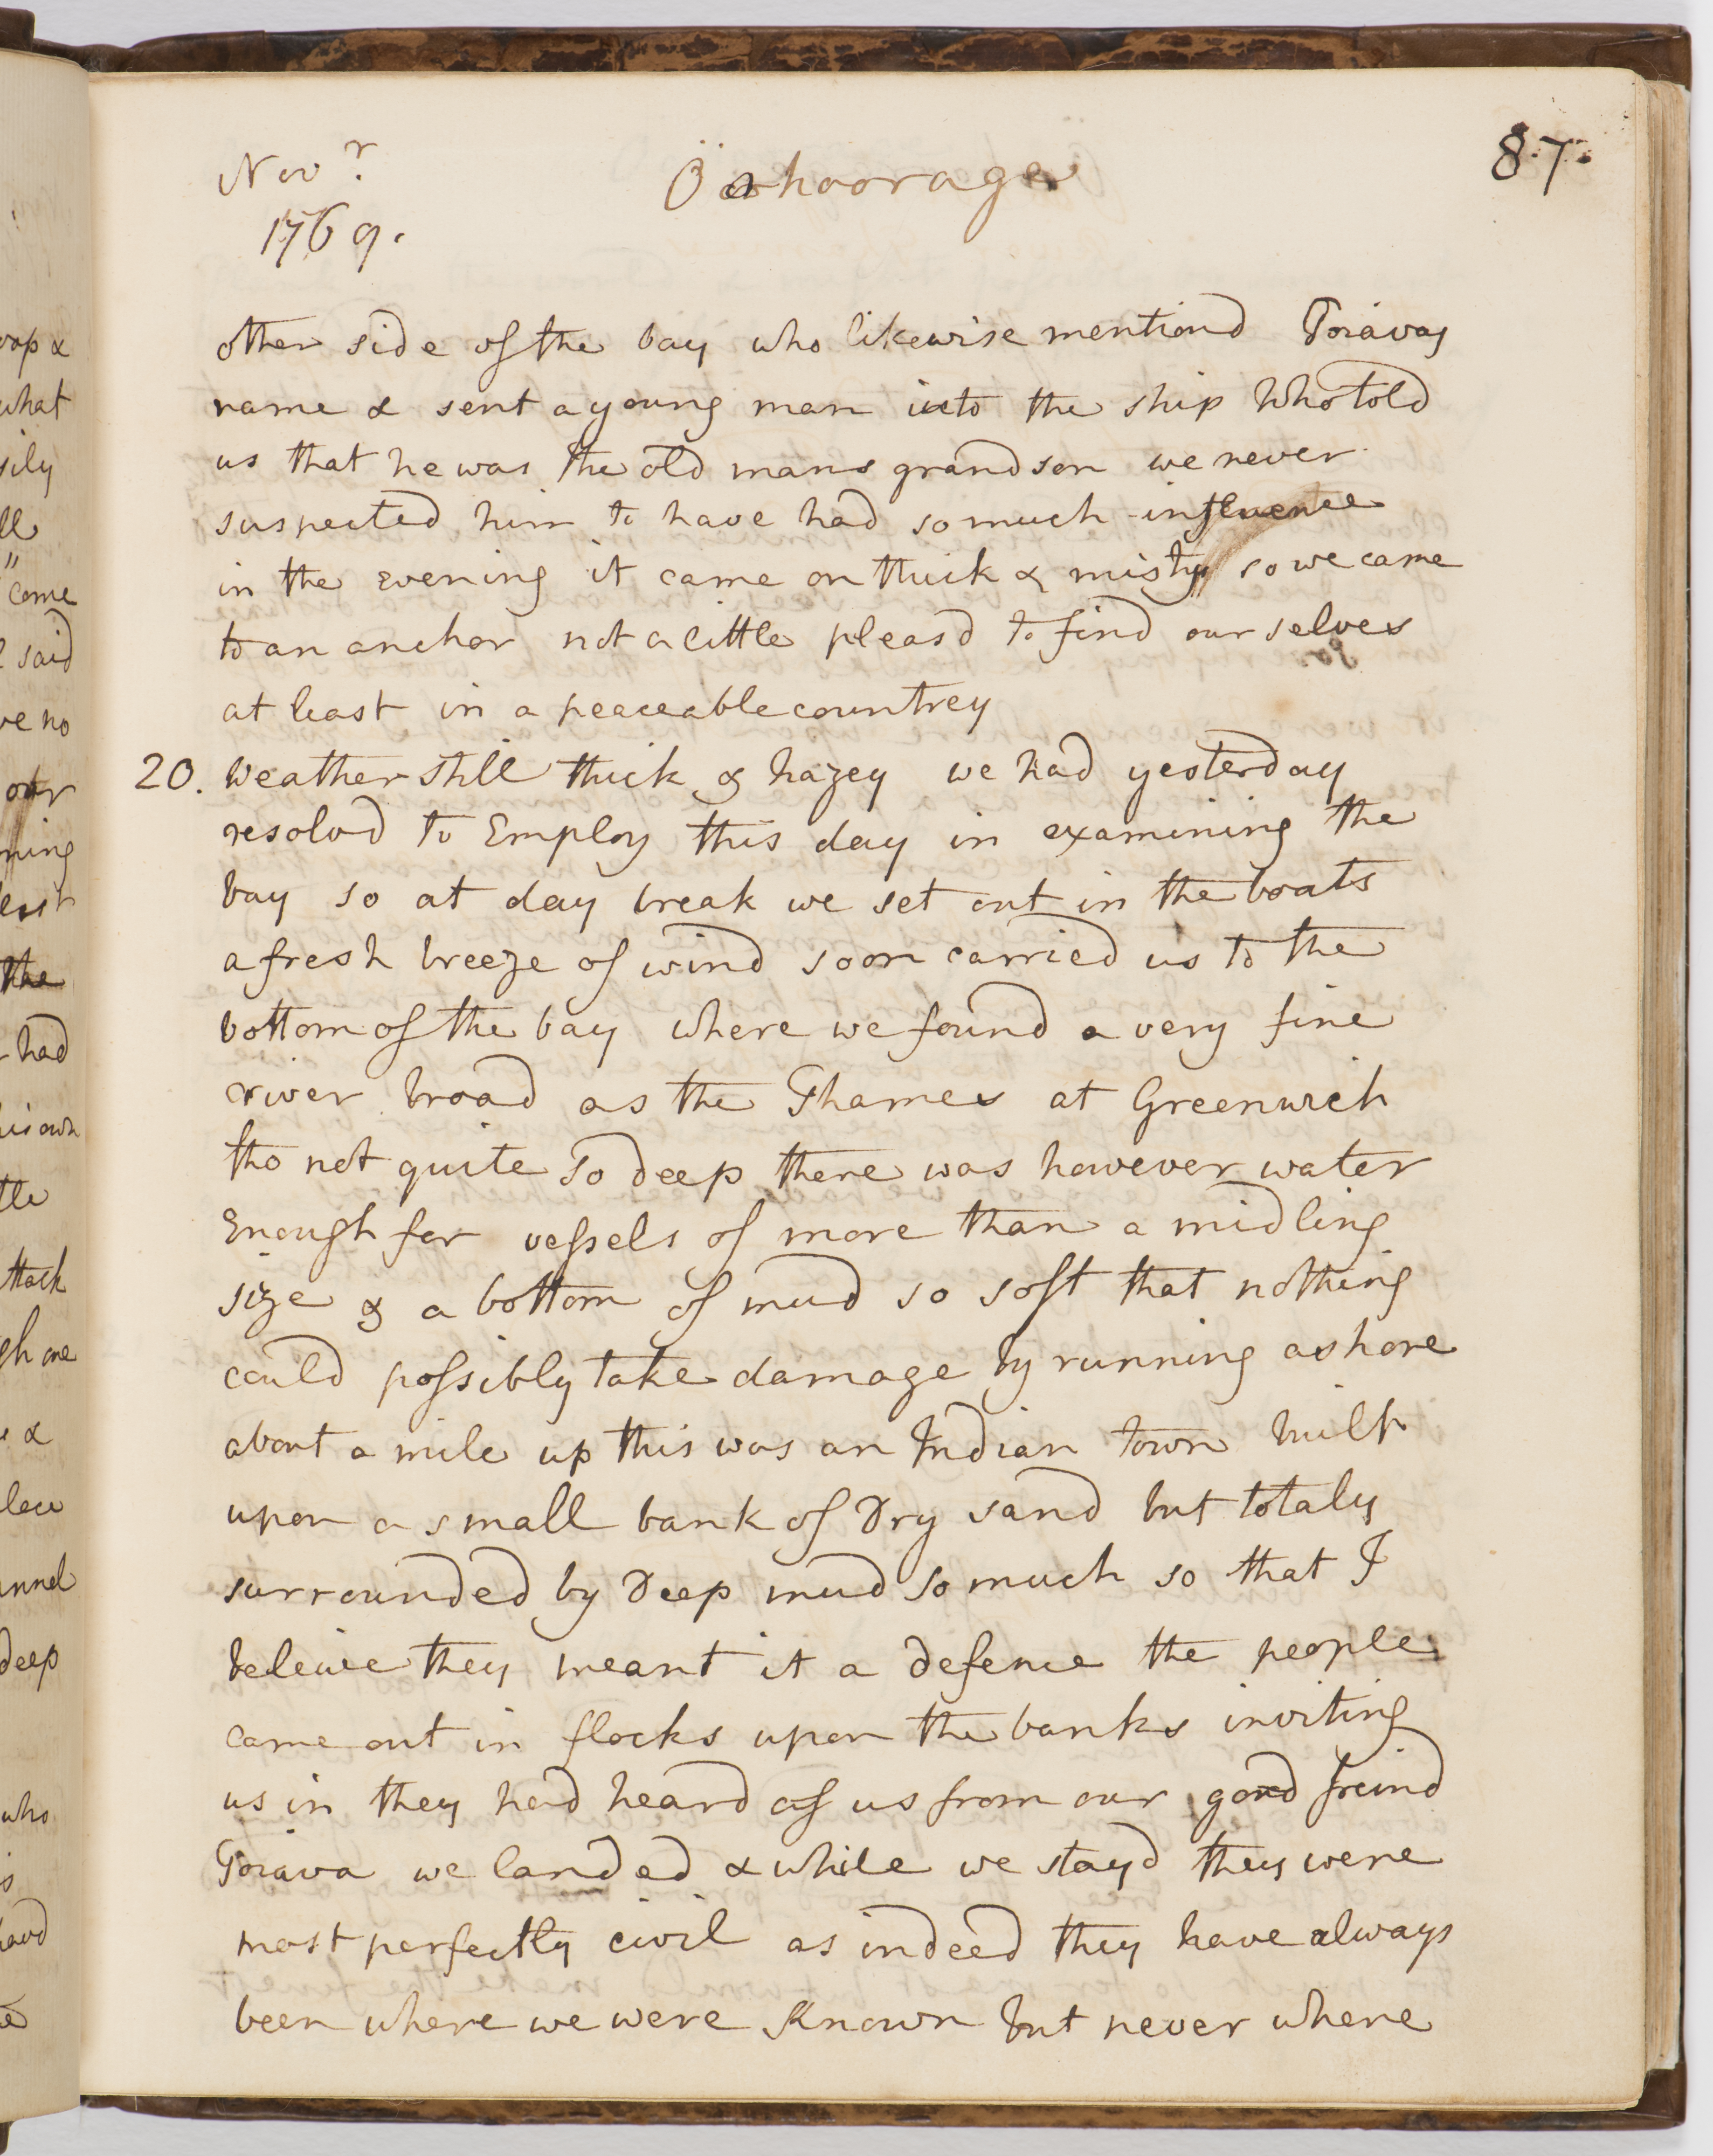 Novr
1769.
Oohoorage
87.
other side of the bay who likewise mentiond Toiavas
name & sent a young man into the ship who told
us that he was the old mans grandson we never
suspected him to have had so much influence
in the evening it came on thick & misty so we came
to an anchor not a little pleasd to find ourselves
at least in a peaceable countrey
20. Weather still thick & hazey we had yesterday
resolvd to Employ this day in examining the
bay so at day break we set out in the boats
a fresh breeze of wind soon carried us to the
bottom of the bay where we found a very fine
river broad as the Thames at Greenwich
tho not quite so deep there was however water
Enough for vessels of more than a midling
size & a bottom of mud so soft that nothing
could possibly take damage by running ashore
about a mile up this was an Indian town built
upon a small bank of Dry sand but totaly
surrounded by Deep mud so much so that I
beleive they meant it a defence the people
came out in flocks upon the banks inviting
us in they had heard of us from our good freind
Toiava we landed & while we stayd they were
most perfectly civil as indeed they have always
been where we were known but never where